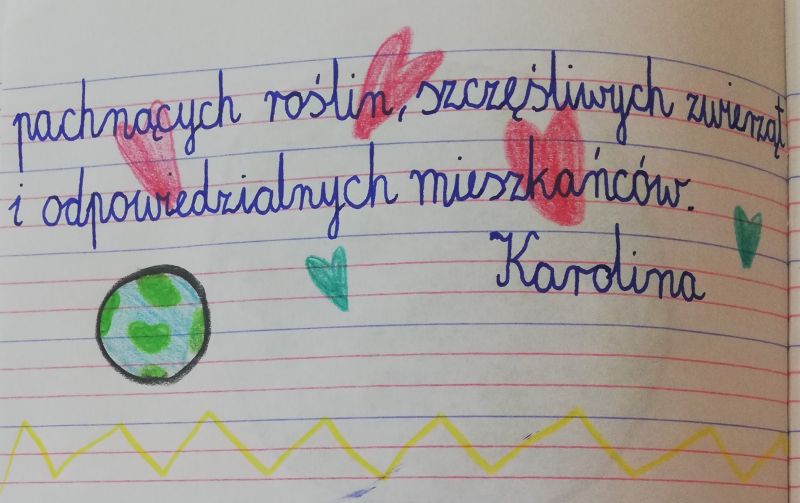 pachnących roślin, szczęśliwych zwierząt
i odpowiedzialnych mieszkańców.
Karolina